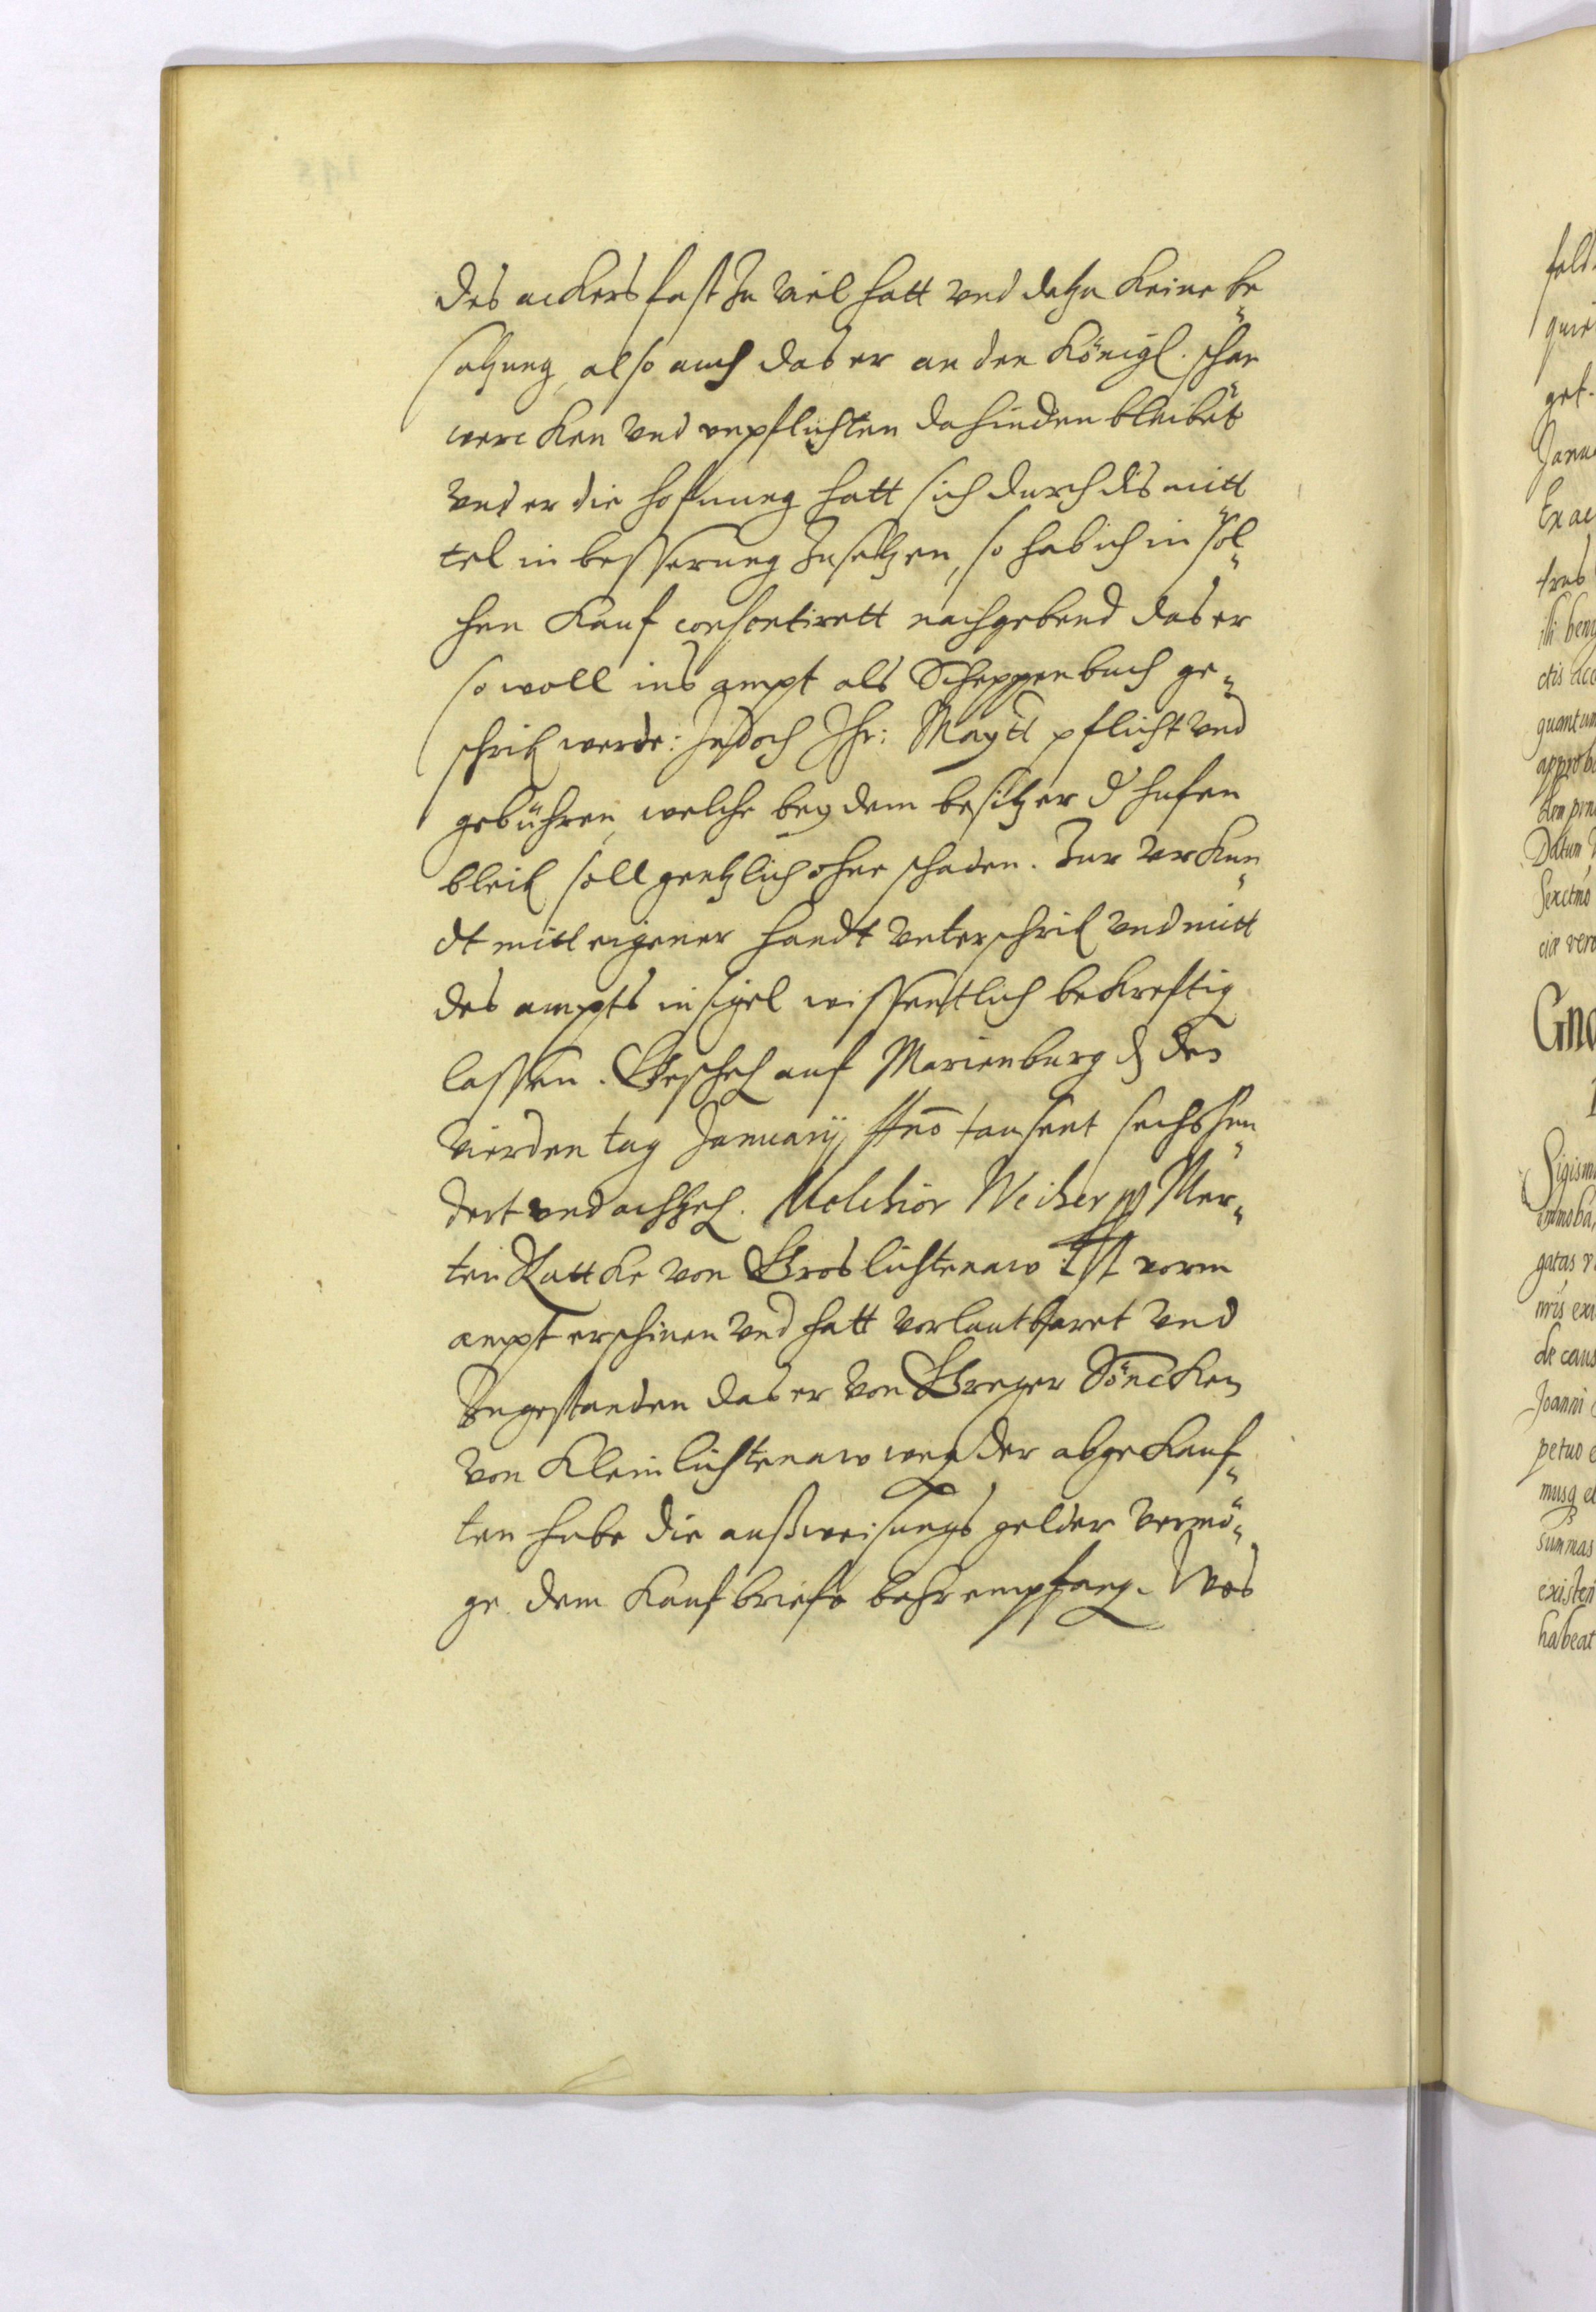 des ackers fast zu viel hatt vnd datzu keine be„
satzung, also auch das er an den Königl. schar„
wercken vnd vnpflichten dahinden bleibet
vnd er die hoffnung hatt sich durch dis mitt„
tel in besserung zusetzen, so hab ich in sol„
chen Kauf consentirett nachgebend das er
so woll ins ampt als Scheppenbuch ge„
schrib werde: Jedoch Ihr: Maytt pflicht vnd
gebühren, welche bey dem besitzer d' hufen
bleib soll gentzlich ohne schaden. Zur vrkun„
dt mitt eigener handt vnterschrib vnd mitt
des ampts insigel wissentlich bekreftig
lassen. Gescheh auf Marienburg den
vierden tag January Año tausent sechshun„
dert vnd achtzeh. Melchior Weiher Mer„
ten Rattke von Groslichtenaw Ist vorm
ampt erschinen vnd hatt vorlautbaret vnd
zugestanden das er von Greger Söncken
von Kleinlichtenaw weg der abgekauf„
ten hube die außweisungs gelder vermö„
ge dem Kaufbriefe behr empfang. Was
feld
quie
get.
Janu
Ex ac
tres
illi beni
ctis acc
quantum
approba
dem pro
Datum
Sexcimo
ciæ vero
Gno
Sigism
omnoba,
gatas v
nris exi
de caus
Joanni
petuo e
musq et
summas
existen
habeat